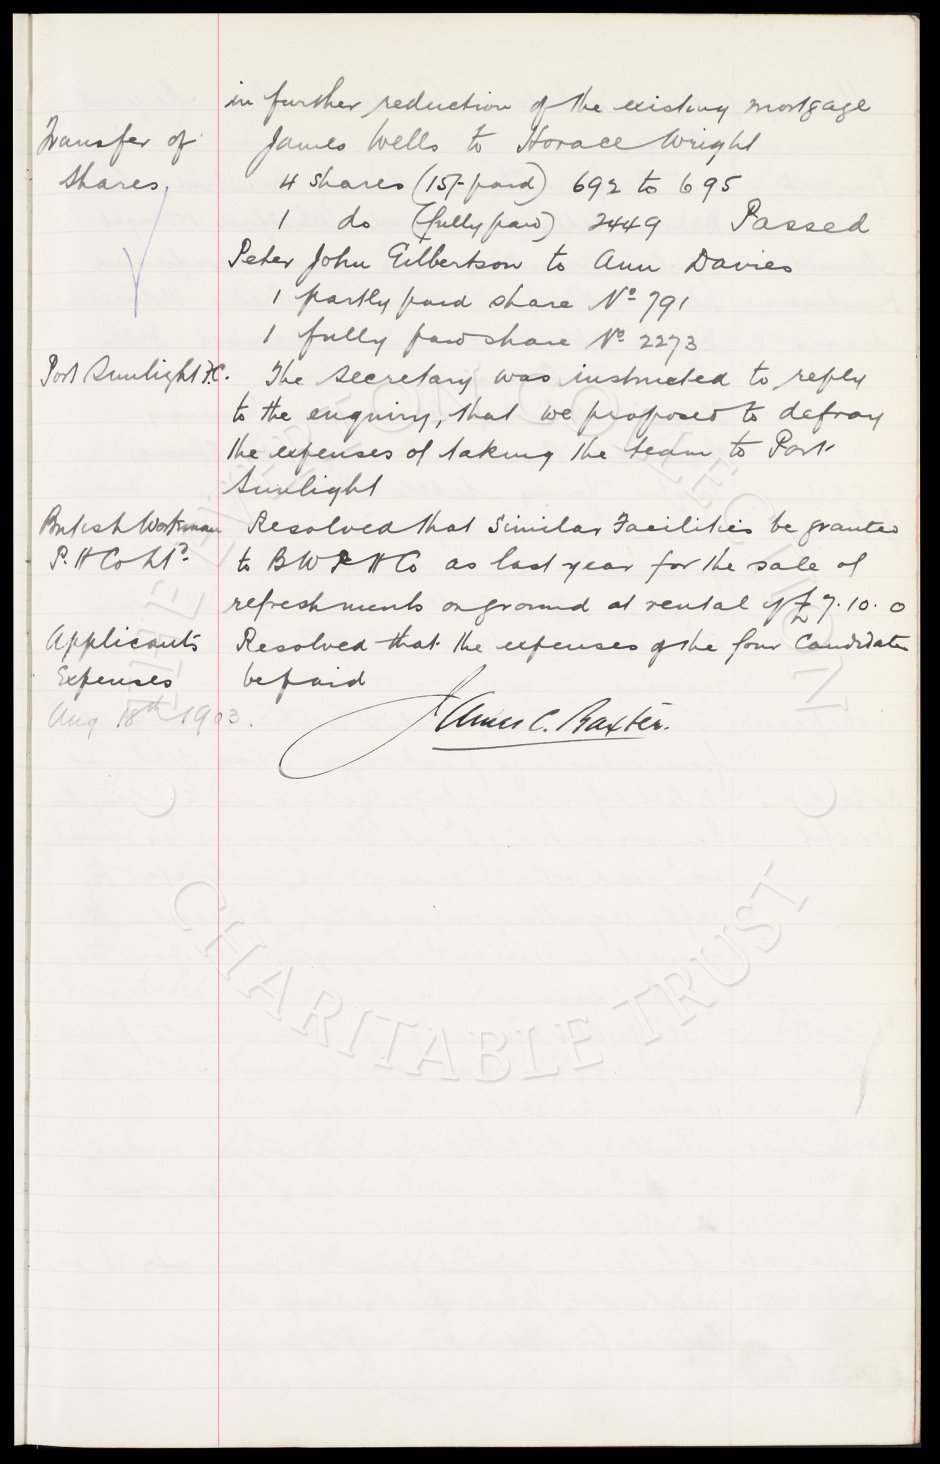 in further reduction of the existing mortgage
Transfer of James Wells to Horace Wright
Shares 4 shares (15/- paid) 692 to 695
1 do (fully paid) 2449 Passed
Peter John Gilbertson to Ann Davies
1 partly paid share No 791
1 fully paid share No 2273
Port Sunlight F.C. The Secretary was instructed to reply
to the enquiry, that we proposed to defray
the expenses of taking the team to Port
Sunlight
British Workman Resolved that Similar Facilities be granted
P. H Co Ltd. to B W P H Co as last year for the sale of
refreshments on ground at rental of £7.10.0
Applicants Resolved that the expenses of the four Candidates
Expenses be paid
Aug 18th 1903.
James C. Baxter.
THE EVERTON COLLECTION
CHARITABLE TRUST